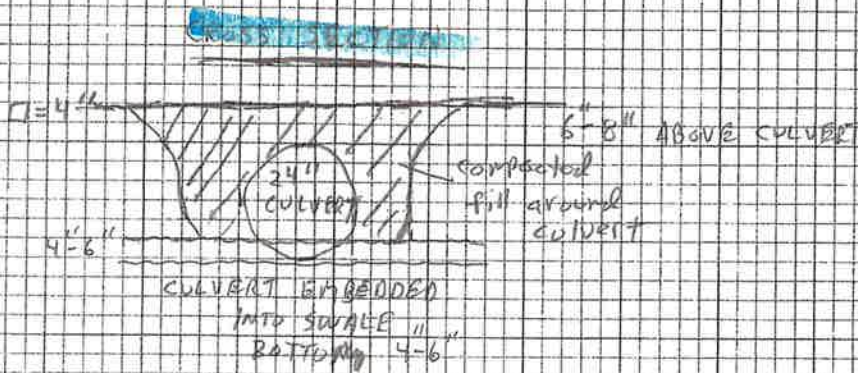 CROSS SECTION
□=4"
6"-8" ABOVE CULVERT
compacted
fill around
culvert
24"
CULVERT
4"-6"
CULVERT EMBEDDED
INTO SWALE
BOTTOM 4-6"